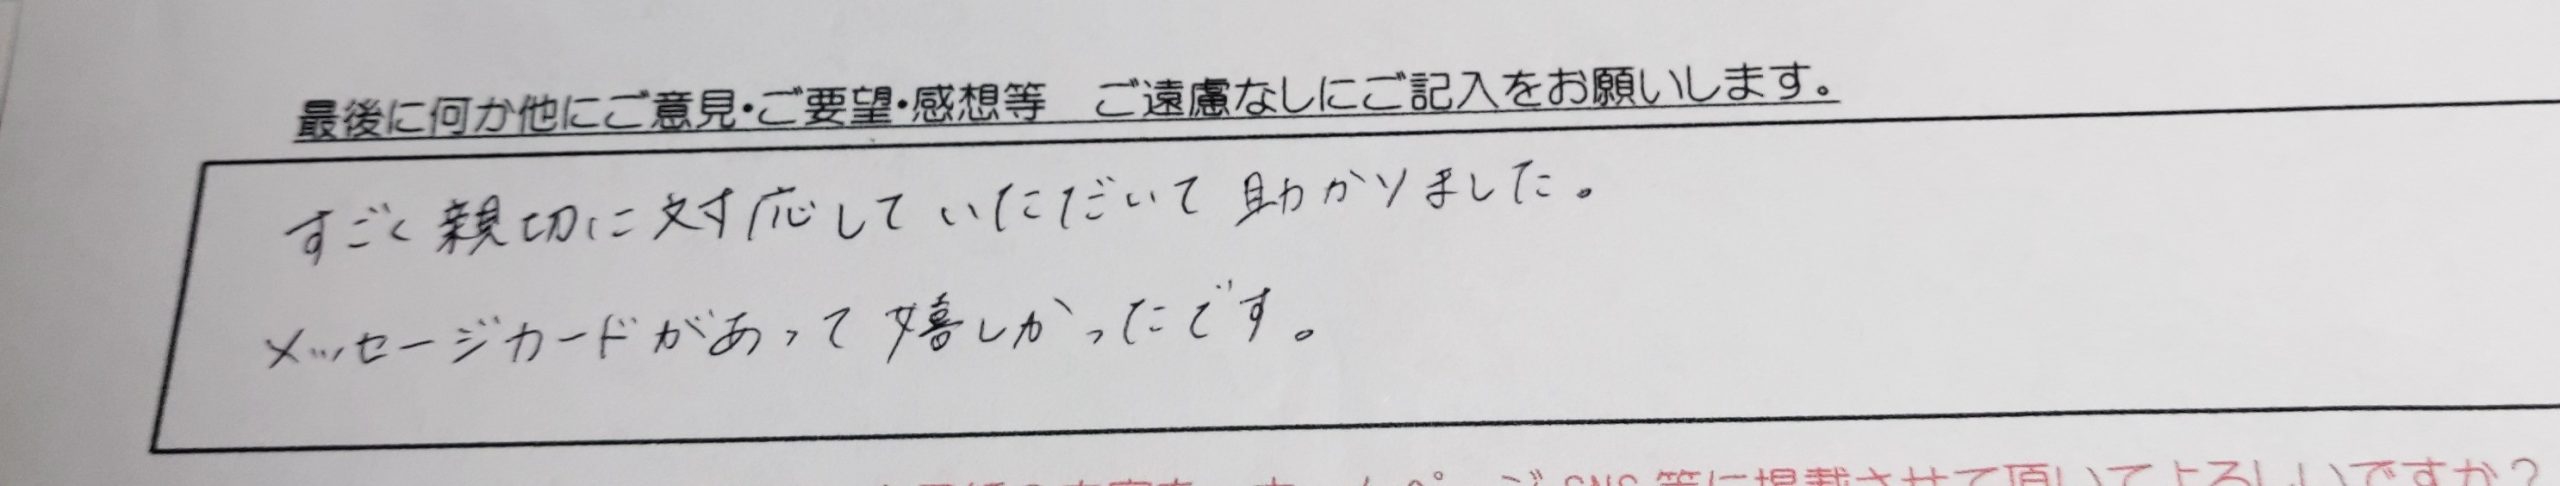 最後に何か他にご意見・ご要望・感想等　ご遠慮なしにご記入をお願いします。
すごく親切に対応していただいて助かりました。
メッセージカードがあって嬉しかったです。
ホームページSNS等に掲載させて頂いてよろしいですか？